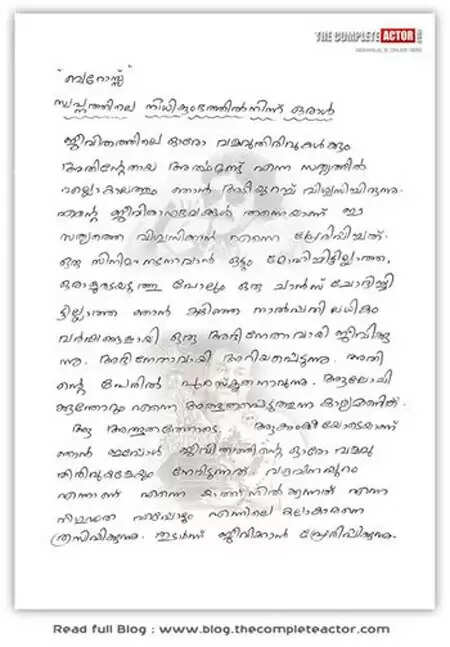 THE COMPLETE ACTOR
"ബറോസ്സ്"
സ്വപ്നത്തിലെ നിധികുംഭത്തിൽനിന്ന് ഒരാൾ
ജീവിതത്തിലെ ഓരോ വഴിത്തിരിവുകൾക്കും
അതിന്റേതായ അർത്ഥമുണ്ട് എന്ന സത്യത്തിൽ
എല്ലാകാലത്തും ഞാൻ അടിയുറച്ച് വിശ്വസിച്ചിരുന്നു.
എന്റെ ജീവിതാനുഭവങ്ങൾ തന്നെയാണ് ഈ
സത്യത്തെ വിശ്വസിക്കാൻ എന്നെ പ്രേരിപ്പിച്ചത്.
ഒരു സിനിമാനടനാവാൻ ഒട്ടും മോഹിച്ചിട്ടില്ലാത്ത,
ഒരാളുടെയടുത്തു പോലും ഒരു ചാൻസ് ചോദിച്ചി
ട്ടില്ലാത്ത ഞാൻ കഴിഞ്ഞ നാൽപ്പതിലധികം
വർഷങ്ങളായി ഒരു അഭിനേതാവായി ജീവിക്കു
ന്നു. അഭിനേതാവായി അറിയപ്പെടുന്നു. അതി
ന്റെ പേരിൽ പുരസ്കൃതനാവുന്നു. ആലോചി
ക്കുന്തോറും എന്നെ അത്ഭുതപ്പെടുത്തുന്ന കാര്യമാണിത്.
ആ അത്ഭുതത്തോടെ, ആകാംക്ഷയോടെയാണ്
ഞാൻ ഇപ്പോൾ ജീവിതത്തിന്റെ ഓരോ വഴി
ത്തിരിവുകളേയും നേരിടുന്നത്. വളവിനപ്പുറം
എന്താണ് എന്നെ കാത്തുനിൽക്കുന്നത് എന്ന
നിഗൂഢത എപ്പോഴും എന്നിലെ കലാകാരനെ
ത്രസിപ്പിക്കുന്നു. തുടർന്ന് ജീവിക്കാൻ പ്രേരിപ്പിക്കുന്നു.
Read full Blog : www.blog.thecompleteactor.com